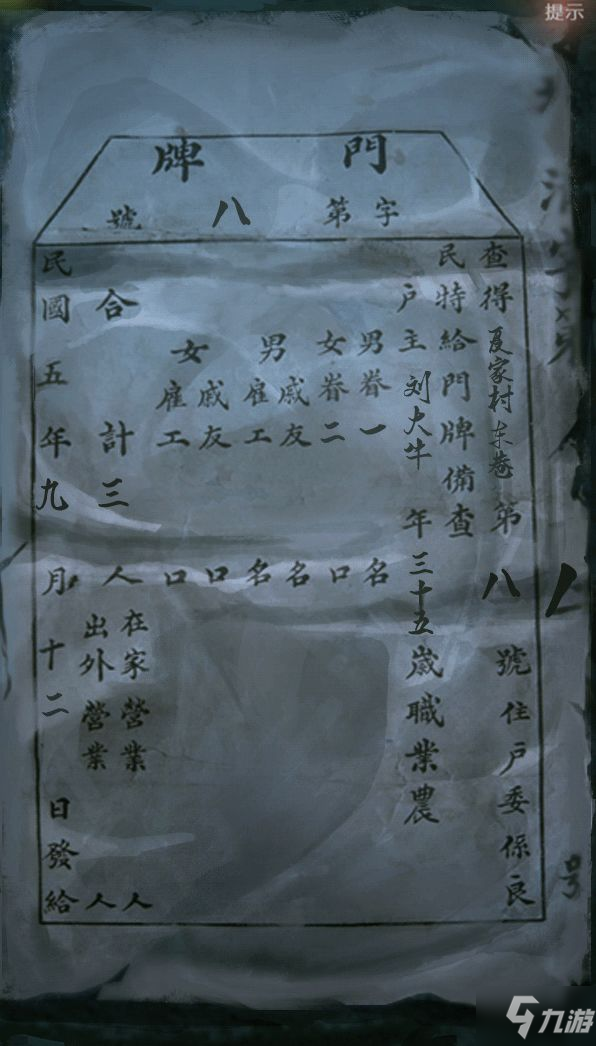 提示
門牌
字第八號
查得夏家村东巷第八號住戶委係良
民特給門牌備查
戶主刘大牛年三十五歲職業農
男眷一名
女眷二口
男戚友名
男雇工名
女戚友口
女雇工口
合計三人
在家營業人
出外營業人
民國五年九月十二日發給
号
九游